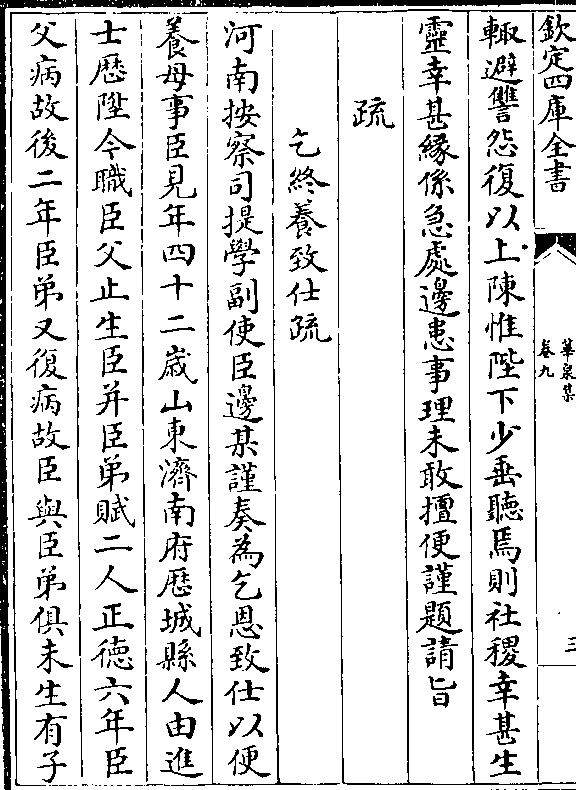 欽定四庫全書
華泉集
卷九
三
輙避讐怨復以上陳惟陛下少垂聽焉則社稷幸甚生
靈幸甚縁係急處邊患事理未敢擅便謹題請旨
疏
乞終養致仕疏
河南按察司提學副使臣邊某謹奏為乞恩致仕以便
養母事臣見年四十二嵗山東濟南府歴城縣人由進
士歴陞今職臣父止生臣并臣弟賦二人正德六年臣
父病故後二年臣弟又復病故臣與臣弟俱未生有子